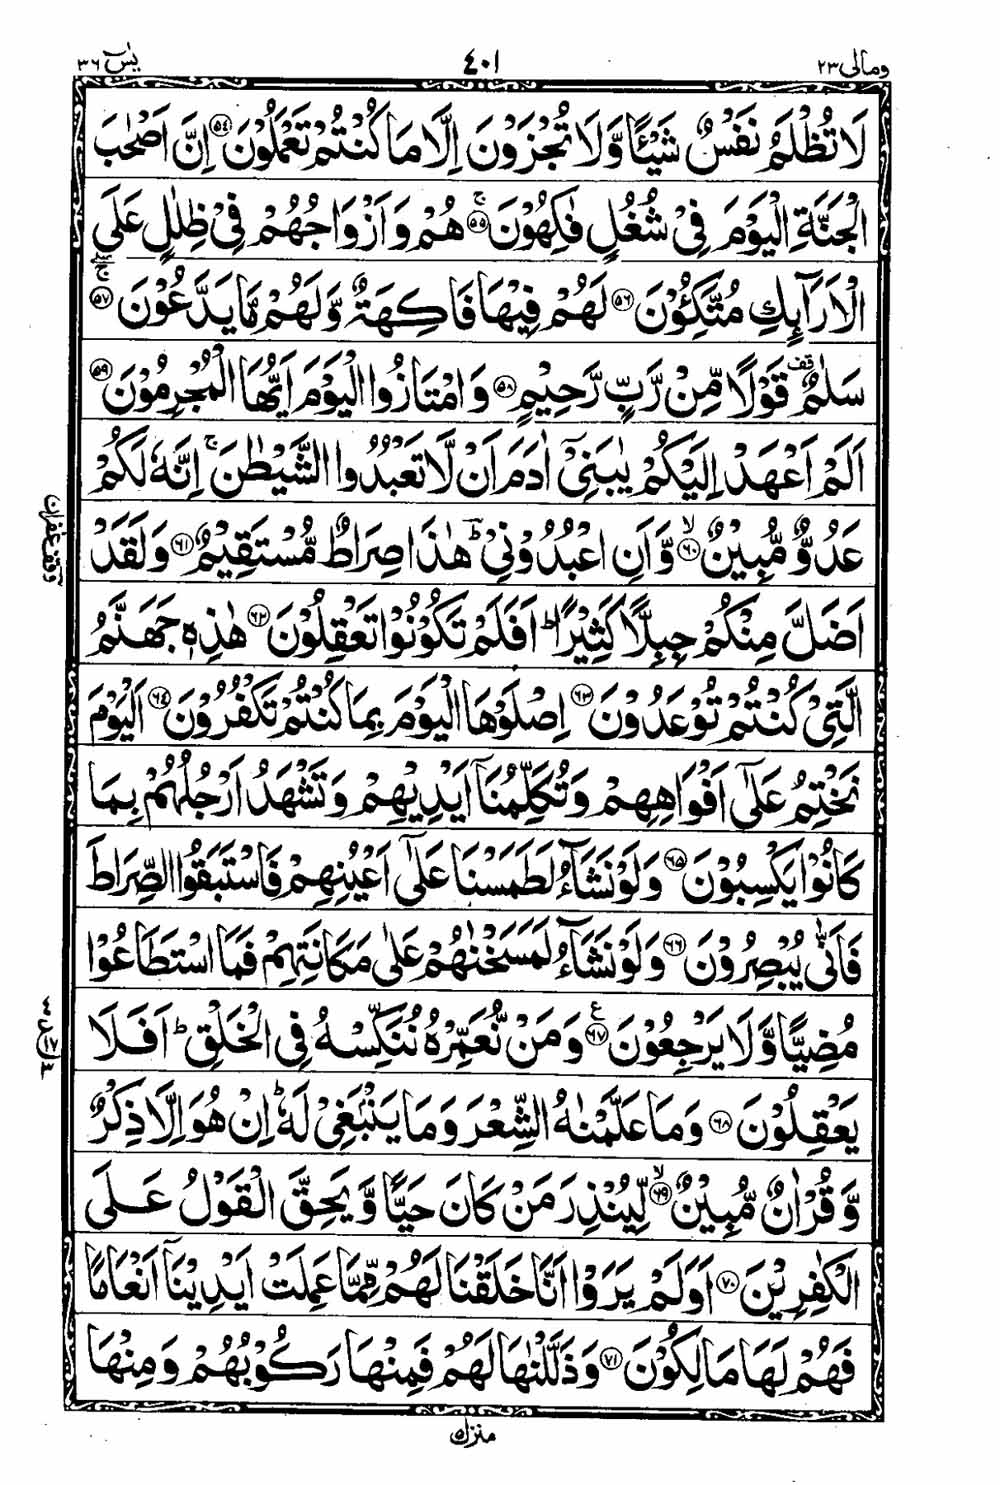 ومالی ٢٣
٤٠١
یٰسٓ ٣٦
لَا تُظْلَمُ نَفْسٌ شَیْـًٔا وَّلَا تُجْزَوْنَ اِلَّا مَا كُنْتُمْ تَعْمَلُوْنَ ﴿٥٤﴾ اِنَّ اَصْحٰبَ
الْجَنَّةِ الْیَوْمَ فِیْ شُغُلٍ فٰكِهُوْنَ ۚ﴿٥٥﴾ هُمْ وَاَزْوَاجُهُمْ فِیْ ظِلٰلٍ عَلَی
الْاَرَآىِٕكِ مُتَّكِـُٔوْنَ ﴿٥٦﴾ لَهُمْ فِیْهَا فَاكِهَةٌ وَّلَهُمْ مَّا یَدَّعُوْنَ ﴿٥٧﴾
سَلٰمٌ قف قَوْلًا مِّنْ رَّبٍّ رَّحِیْمٍ ﴿٥٨﴾ وَامْتَازُوا الْیَوْمَ اَیُّهَا الْمُجْرِمُوْنَ ﴿٥٩﴾
اَلَمْ اَعْهَدْ اِلَیْكُمْ یٰبَنِیْۤ اٰدَمَ اَنْ لَّا تَعْبُدُوا الشَّیْطٰنَ ۚ اِنَّهٗ لَكُمْ
عَدُوٌّ مُّبِیْنٌ ۙ﴿٦٠﴾ وَّاَنِ اعْبُدُوْنِیْ ؕ هٰذَا صِرَاطٌ مُّسْتَقِیْمٌ ﴿٦١﴾ وَلَقَدْ
وقف غفران
اَضَلَّ مِنْكُمْ جِبِلًّا كَثِیْرًا ؕ اَفَلَمْ تَكُوْنُوْا تَعْقِلُوْنَ ﴿٦٢﴾ هٰذِهٖ جَهَنَّمُ
الَّتِیْ كُنْتُمْ تُوْعَدُوْنَ ﴿٦٣﴾ اِصْلَوْهَا الْیَوْمَ بِمَا كُنْتُمْ تَكْفُرُوْنَ ﴿٦٤﴾ اَلْیَوْمَ
نَخْتِمُ عَلٰۤی اَفْوَاهِهِمْ وَتُكَلِّمُنَاۤ اَیْدِیْهِمْ وَتَشْهَدُ اَرْجُلُهُمْ بِمَا
كَانُوْا یَكْسِبُوْنَ ﴿٦٥﴾ وَلَوْ نَشَآءُ لَطَمَسْنَا عَلٰۤی اَعْیُنِهِمْ فَاسْتَبَقُوا الصِّرَاطَ
فَاَنّٰی یُبْصِرُوْنَ ﴿٦٦﴾ وَلَوْ نَشَآءُ لَمَسَخْنٰهُمْ عَلٰی مَكَانَتِهِمْ فَمَا اسْتَطَاعُوْا
مُضِیًّا وَّلَا یَرْجِعُوْنَ ﴿٦٧﴾ع وَمَنْ نُّعَمِّرْهُ نُنَكِّسْهُ فِی الْخَلْقِ ؕ اَفَلَا
یَعْقِلُوْنَ ﴿٦٨﴾ وَمَا عَلَّمْنٰهُ الشِّعْرَ وَمَا یَنْۢبَغِیْ لَهٗ ؕ اِنْ هُوَ اِلَّا ذِكْرٌ
وَّقُرْاٰنٌ مُّبِیْنٌ ۙ﴿٦٩﴾ لِّیُنْذِرَ مَنْ كَانَ حَیًّا وَّیَحِقَّ الْقَوْلُ عَلَی
الْكٰفِرِیْنَ ﴿٧٠﴾ اَوَلَمْ یَرَوْا اَنَّا خَلَقْنَا لَهُمْ مِّمَّا عَمِلَتْ اَیْدِیْنَاۤ اَنْعَامًا
فَهُمْ لَهَا مَالِكُوْنَ ﴿٧١﴾ وَذَلَّلْنٰهَا لَهُمْ فَمِنْهَا رَكُوْبُهُمْ وَمِنْهَا
منزل ٥